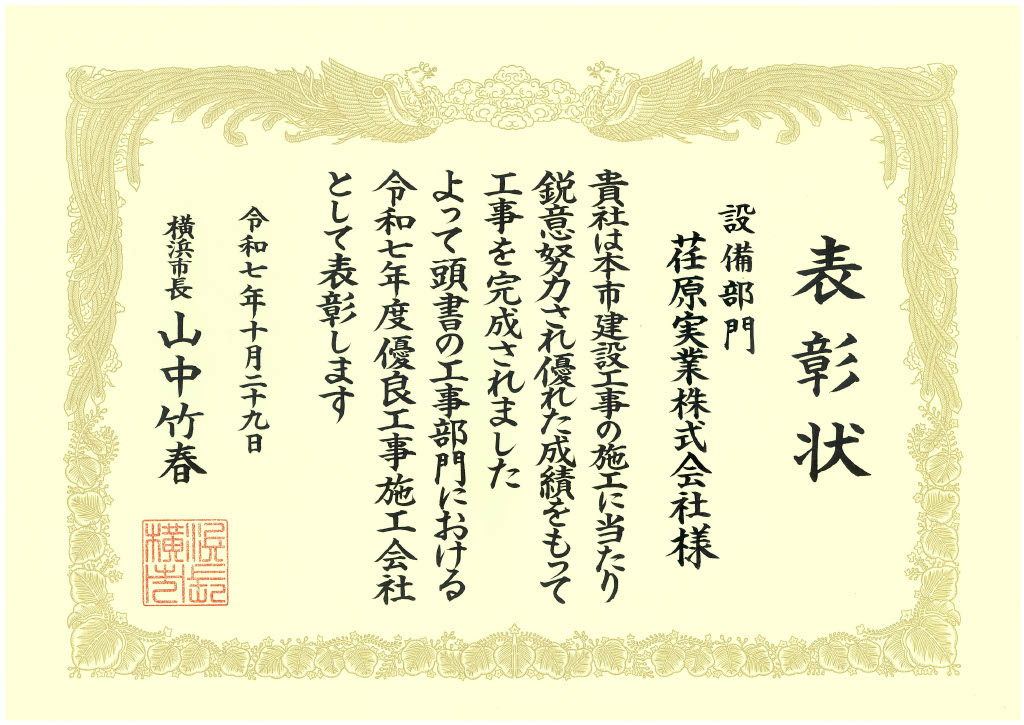 表彰状
設備部門
荏原実業株式会社様
貴社は本市建設工事の施工に当たり
鋭意努力され優れた成績をもって
工事を完成されました
よって頭書の工事部門における
令和七年度優良工事施工会社
として表彰します
令和七年十月二十九日
横浜市長 山中竹春